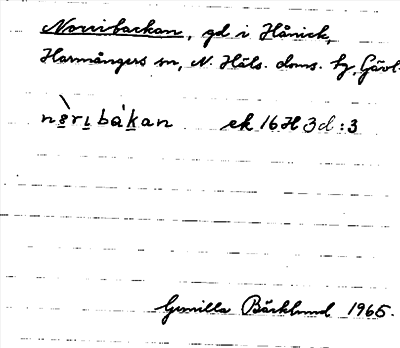 Norribackan, gd i Hånick,
Harmångers sn, N. Häls. doms. hg, Gävl.
nè̱ri̱báḵan ek 16 H 3d:3
Gunilla Bäcklund 1965.